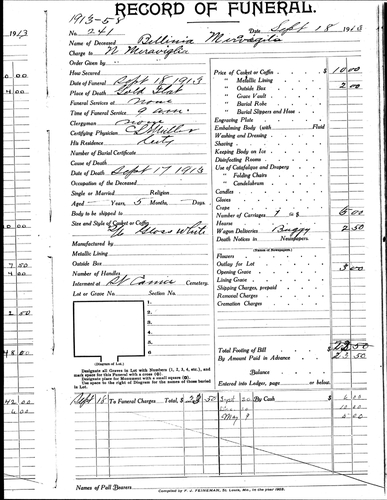 1913-58
RECORD OF FUNERAL.
No. 241 Date Sept 18 1913
Name of Deceased Bellinia Miraviglia
Charge to N Miraviglia
Order Given by
How Secured
Date of Funeral Sept 18 1913
Place of Death Gold Flat
Funeral Services at none
Time of Funeral Service 9 a.m.
Clergyman none
Certifying Physician C. Muller
His Residence City
Number of Burial Certificate
Cause of Death
Date of Death Sept 17 1913
Occupation of the Deceased
Single or Married Religion
Aged — Years, 5 Months, — Days.
Body to be shipped to
Size and Style of Casket or Coffin Gloss White
Manufactured by
Metallic Lining
Outside Box
Number of Handles
Interment at St Canice Cemetery.
Lot or Grave No. Section No.
1.
2.
3.
4.
5.
6.
(Diagram of Lot.)
Designate all Graves in Lot with Numbers (1, 2, 3, 4, etc.), and
mark space for this Funeral with a cross
Designate place for Monument with a small square
Use space to the right of Diagram for the names of those buried
in Lot.
Price of Casket or Coffin $ 10 00
" Metallic Lining
" Outside Box 2 00
" Grave Vault
" Burial Robe
" Burial Slippers and Hose
Engraving Plate
Embalming Body (with Fluid
Washing and Dressing
Shaving
Keeping Body on Ice
Disinfecting Rooms
Use of Catafalque and Drapery
" Folding Chairs
" Candelabrum
Candles
Gloves
Crape
Number of Carriages 1 @ $ 5 00
Hearse
Wagon Deliveries Buggy 2 50
Death Notices in Newspapers.
(Names of Newspapers)
Flowers
Outlay for Lot
Opening Grave 3 00
Lining Grave
Shipping Charges, prepaid
Removal Charges
Cremation Charges
Total Footing of Bill $ 22 50
By Amount Paid in Advance 23 50
Balance
Entered into Ledger, page or below.
Sept 18 To Funeral Charges Total, $ 23 50 Sept 20 By Cash $
May 9
Names of Pall Bearers
Compiled by F. J. FEINEMAN, St. Louis, Mo., in the year 1898.